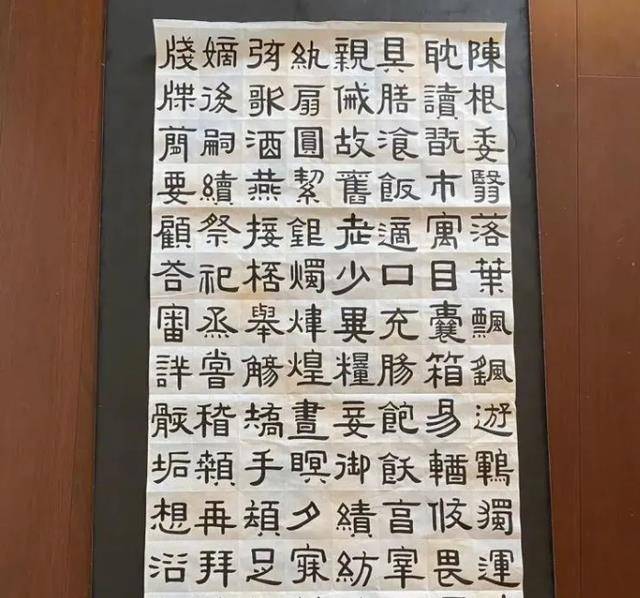 陳根委翳落葉飄颻遊鶤獨運
耽讀翫市寓目囊箱易輶攸畏
具膳飡飯適口充腸飽飫亯宰
親戚故舊老少異糧妾御績紡
紈扇圓絜銀燭煒煌晝瞑夕寐
弦歌酒燕接桮舉觴矯手頓足
嫡後嗣續祭祀烝嘗稽顙再拜
牋牒蕳要顧荅審詳骸垢想浴